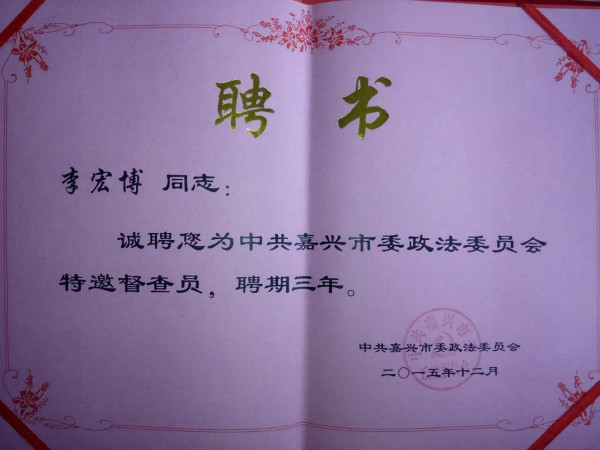 聘书
李宏博 同志：
诚聘您为中共嘉兴市委政法委员会
特邀督查员，聘期三年。
中共嘉兴市委政法委员会
二〇一五年十二月